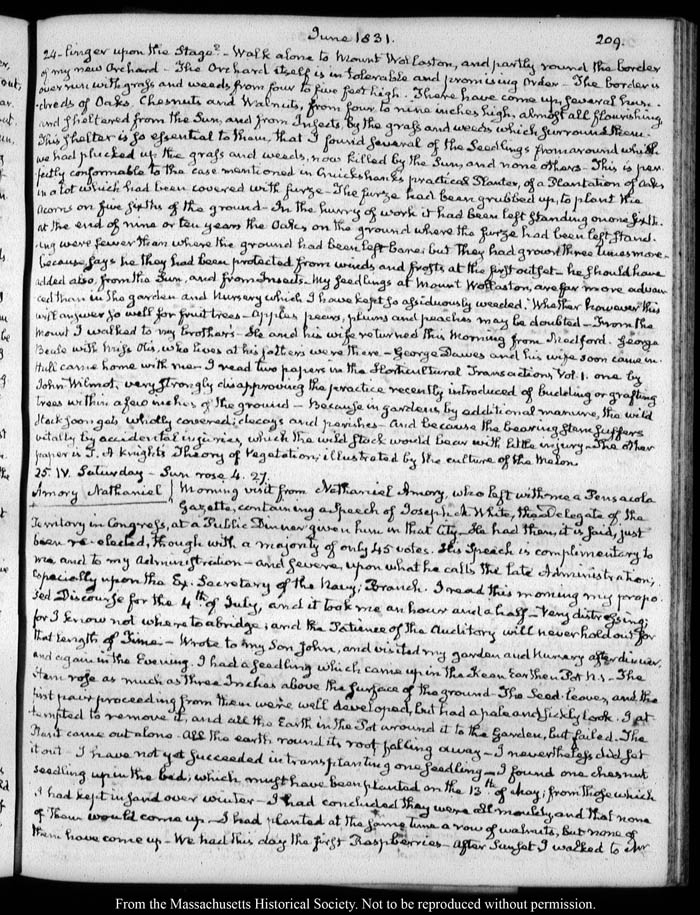 June 1831.
209.
24- linger upon the Stage? - Walk alone to Mount Wollaston, and partly round the border
of my new Orchard - The Orchard itself is in tolerable and promising order - The border is
over run with grass and weeds from four to five feet high. There have come up, several hun-
-dreds of Oaks, Chesnuts and Walnuts, from four to nine inches high, almost all flourishing
and sheltered from the Sun, and from Insects, by the grass and weeds which surround them.
This shelter is so essential to them, that I found several of the Seedlings from around which
we had plucked up the grass and weeds, now killed by the Sun, and none others - This is per-
fectly conformable to the case mentioned in Cruickshank's practical Planter, of a Plantation of Oaks
in a lot which had been covered with furze - The furze had been grubbed up, to plant the
Acorns on five sixths of the ground - In the hurry of work it had been left standing on one sixth.
at the end of nine or ten years the Oaks, on the ground where the furze had been left stand-
ing were fewer than where the ground had been left bare; but They had grown three times more -
because says he they had been protected from winds and frosts at the first outset - he should have
added also, from the Sun, and from Insects - My seedlings at Mount Wollaston, are far more advan-
ced than in the garden and Nursery which I have kept so assiduously weeded. Whether however this
will answer so well for fruit trees - Apples, pears, plums and peaches may be doubted - From the
Mount I walked to my brother's - He and his wife returned this Morning from Medford. George
Beale with Miss Otis, who lives at his father's were there - George Dawes and his wife soon came in.
Hull came home with me - I read two papers in the Horticultural Transactions, Vol. 1. one by
John Wilmot, very strongly disapproving the practice recently introduced of budding or grafting
trees within a few inches of the ground - Because in gardens, by additional manure, the wild
Stock soon gets wholly covered; decays and perishes - And because the bearing Stem suffers
vitally by accidental injuries, which the wild Stock would bear with little injury - The other
paper is T. A Knight's Theory of Vegetation, illustrated by the culture of the Melon
25. IV. Saturday - Sun rose 4. 27.
Amory Nathaniel | Morning visit from Nathaniel Amory, who left with me a Pensacola
Gazette, containing a Speech of Joseph M. White, the Delegate of the
Territory in Congress, at a Public Dinner given him in that City - He had then, it is said, just
been re-elected, though with a majority of only 45 votes. His Speech is complimentary to
me and to my Administration - and severe, upon what he calls the late Administration;
especially upon the Ex. Secretary of the Navy; Branch. I read this morning my propo-
sed Discourse for the 4th of July, and it took me an hour and a half - Very distressing;
for I know not where to abridge; and the Patience of the Auditory will never hold out for
that length of Time - Wrote to my Son John, and visited my garden and Nursery after dinner,
and again in the Evening. I had a seedling which came up in the Earthen Pot N. 1 - The
Stem rose as much as three Inches above the surface of the ground - The Seed-leaves, and the
first pair proceeding from them were well developed, but had a pale and sickly look. I at-
tempted to remove it, and all the Earth in the Pot around it to the Garden, but failed. The
Plant came out alone. All the earth round its root falling away - I nevertheless did set
it out - I have not yet succeeded in transplanting one seedling - I found one chesnut
seedling up in the bed; which must have been planted on the 13th of May; from those which
I had kept in sand over winter - I had concluded they were all mouldy, and that none
of them would come up - I had planted at the same time a row of walnuts, but none of
them have come up - We had this day the first Raspberries - After Sunset I walked to Mr
From the Massachusetts Historical Society. Not to be reproduced without permission.